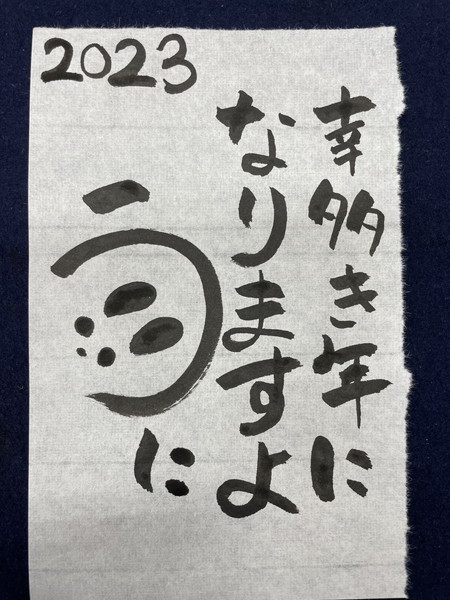 2023
幸多き年に
なりますよ
うに